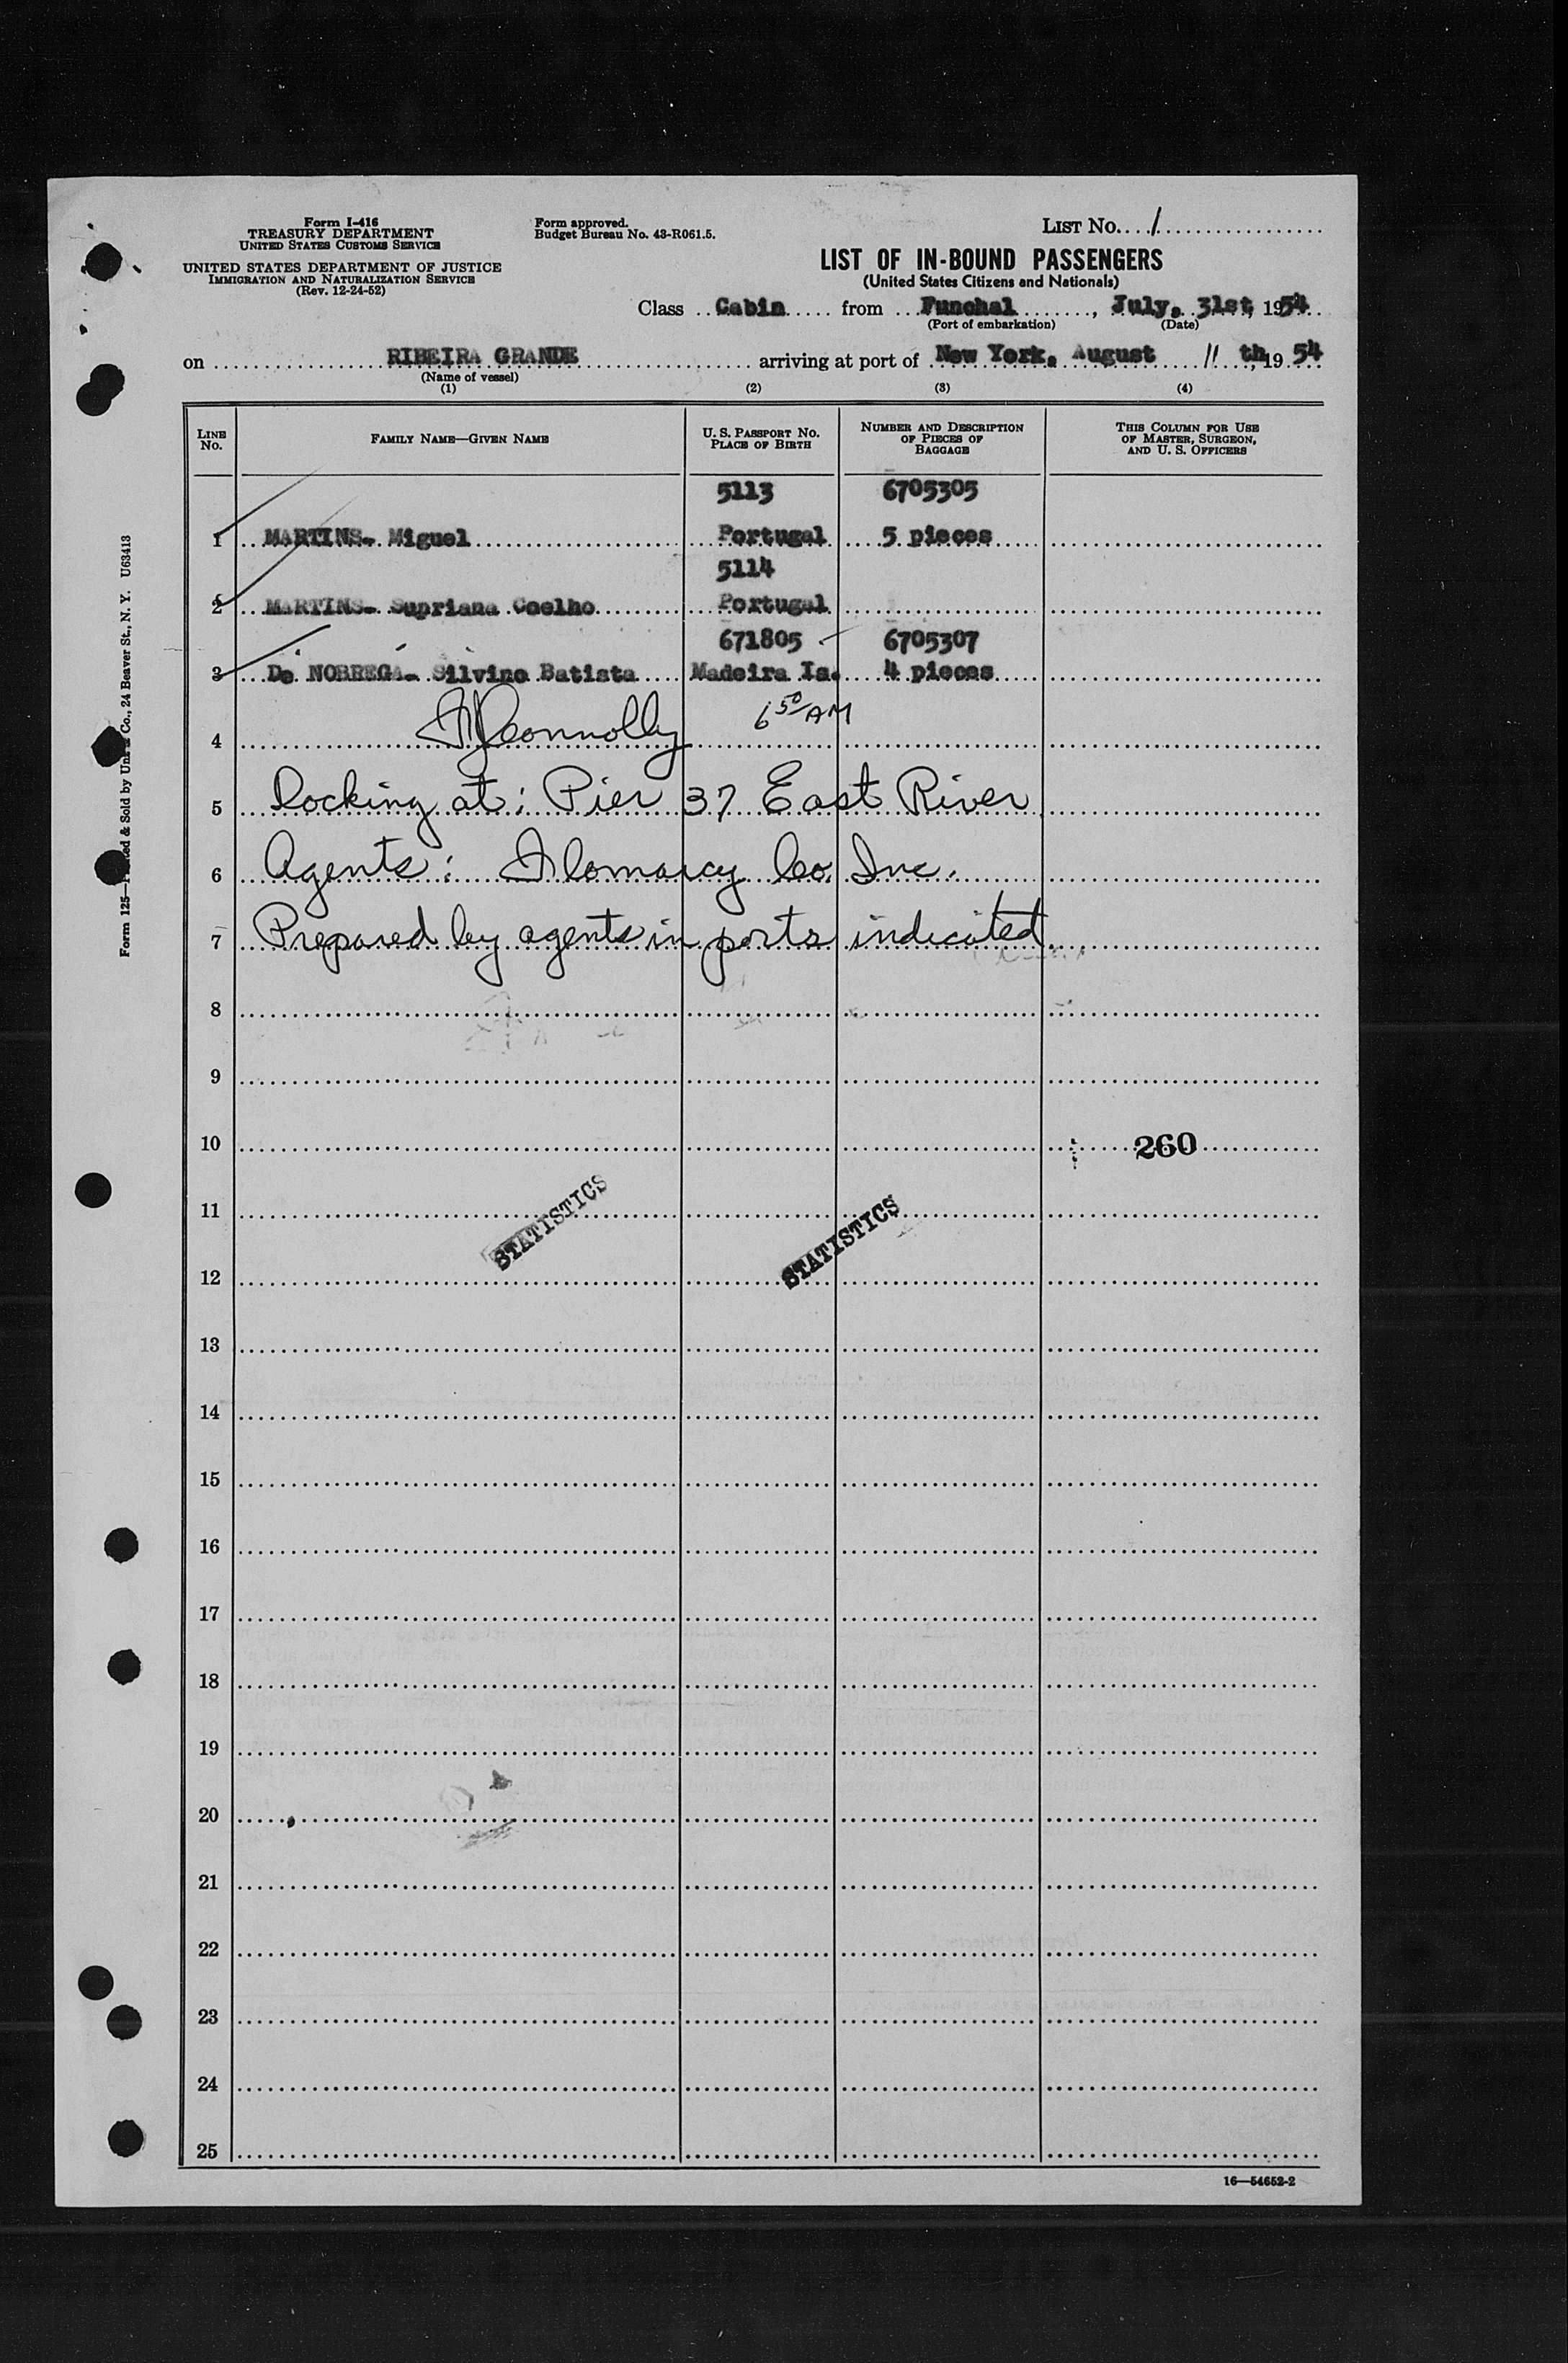 Form I-416
TREASURY DEPARTMENT
UNITED STATES CUSTOMS SERVICE
UNITED STATES DEPARTMENT OF JUSTICE
IMMIGRATION AND NATURALIZATION SERVICE
(Rev. 12-24-52)
Form approved.
Budget Bureau No. 43-R061.5.
LIST No. 1
LIST OF IN-BOUND PASSENGERS
(United States Citizens and Nationals)
Class Cabin from Funchal, July, 31st, 1954
(Port of embarkation) (Date)
on RIBEIRA GRANDE arriving at port of New York, August 11 th, 19 54
(Name of vessel)
(1) (2) (3) (4)
LINE No. FAMILY NAME—GIVEN NAME U. S. PASSPORT No. PLACE OF BIRTH NUMBER AND DESCRIPTION OF PIECES OF BAGGAGE THIS COLUMN FOR USE OF MASTER, SURGEON, AND U. S. OFFICERS
5113 6705305
1 MARTINS- Miguel Portugal 5 pieces
5114
2 MARTINS- Supriana Coelho Portugal
671805 6705307
3 De NOBREGA- Silvino Batista Madeira Is. 4 pieces
4 Connolly 6 50 AM
5 Docking at: Pier 37 East River
6 Agents: Flomarcy Co. Inc.
7 Prepared by agents in ports indicated.
8
9
10 260
11
STATISTICS STATISTICS
12
13
14
15
16
17
18
19
20
21
22
23
24
25
16—54652-2
Form 125— & Sold by Co., 24 Beaver St., N. Y. U63413